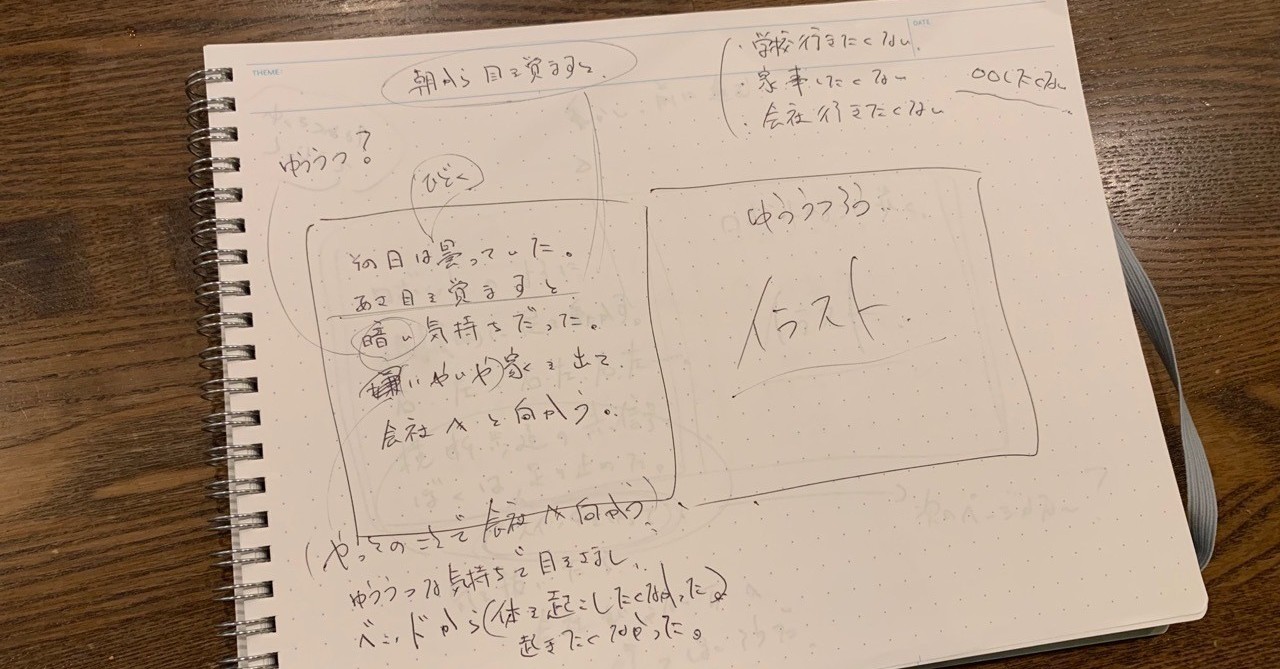 THEME:
DATE
朝から目を覚ますと、
・学校行きたくない
・家事したくない
・会社行きたくない
○○したくない
ゆううつ?
ひどく
その日は曇っていた。
あさ目を覚ますと
暗い気持ちだった。
いやいや家を出て、
会社へと向かう。
ゆううつろう
イラスト
やっとのことで会社へ向かう
ゆううつな気持ちで目をさまし、
ベッドから(体を起こしたくなかった。)
起きたくなかった。